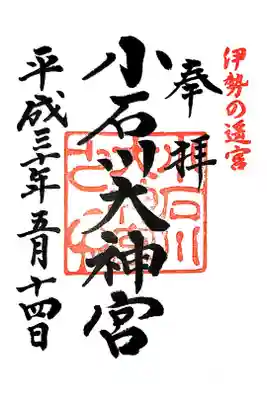 伊勢の遥宮
奉拝
小石川大神宮
平成三十年五月十四日